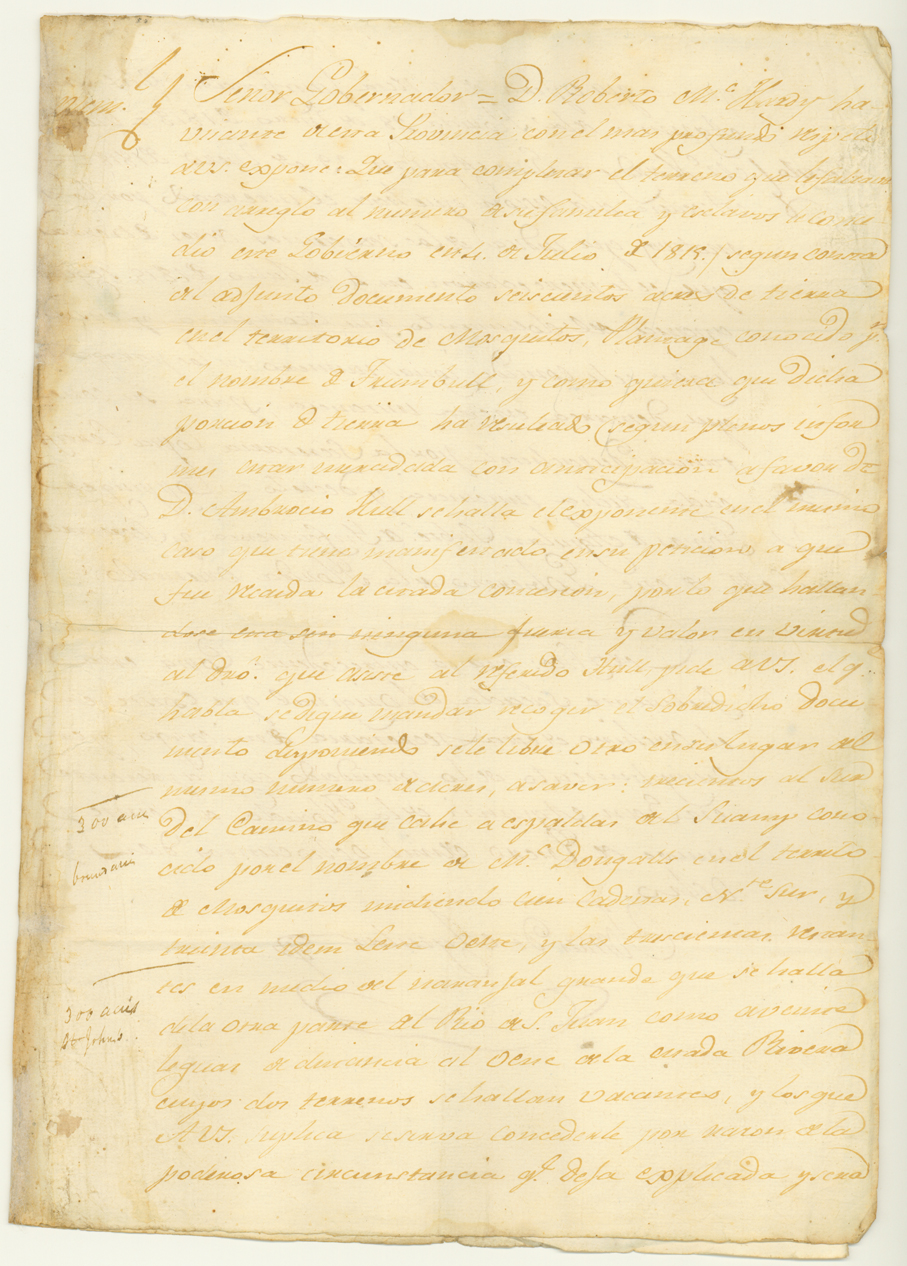 Mem.l
Señor Gobernador = D. Roberto Mc. Hardy ha-
vitante de esta Provincia con el mas profundo respeto
a V.S. expone: Que para completar el terreno que le faltava
con arreglo al numero de su familia y esclavos le conse-
dio este Gobierno en 4. de Julio de 181 (segun consta
del adjunto documento seiscientos acres de tierra
en el territorio de Mosquitos, Plantage conocido pr.
el nombre de Trumbull, y como quiera que dicha
porcion de tierra ha resultado (segun plenos infor-
mes estar mercedeada con anticipacion a favor de
D. Ambrocio Hull se halla el exponente en el mismo
caso que tiene manifestado en su peticion, a que
fue recaida la citada concesion, por lo que hallan-
dose esta sin ninguna fuerza y valor en virtud
del dro. que asiste al referido Hull, pide a V.S. el q.
habla se digne mandar recoger el sobredicho docu-
mento disponiendo se le libre otro en su lugar del
mismo numero de acres, a saver: trecientos al Sur
300 acres
Del Camino que cahe a espaldas del Suamp cono-
cido por el nombre de Mc. Dougalls en el territo.
de Mosquitos midiendo cien Cadenas, Nte. Sur, y
treinta idem Leste Oeste, y las trescientas restan-
tes en medio del naranjal grande que se halla
300 acres
St Johns
de la otra parte del Rio de S. Juan como a veinte
leguas de distancia al Oeste de la citada Rivera
cuyos dos terrenos se hallan vacantes, y los que
A V.S. suplica se sirva concederle por razon de la
poderosa circunstancia q. deja explicada y sera